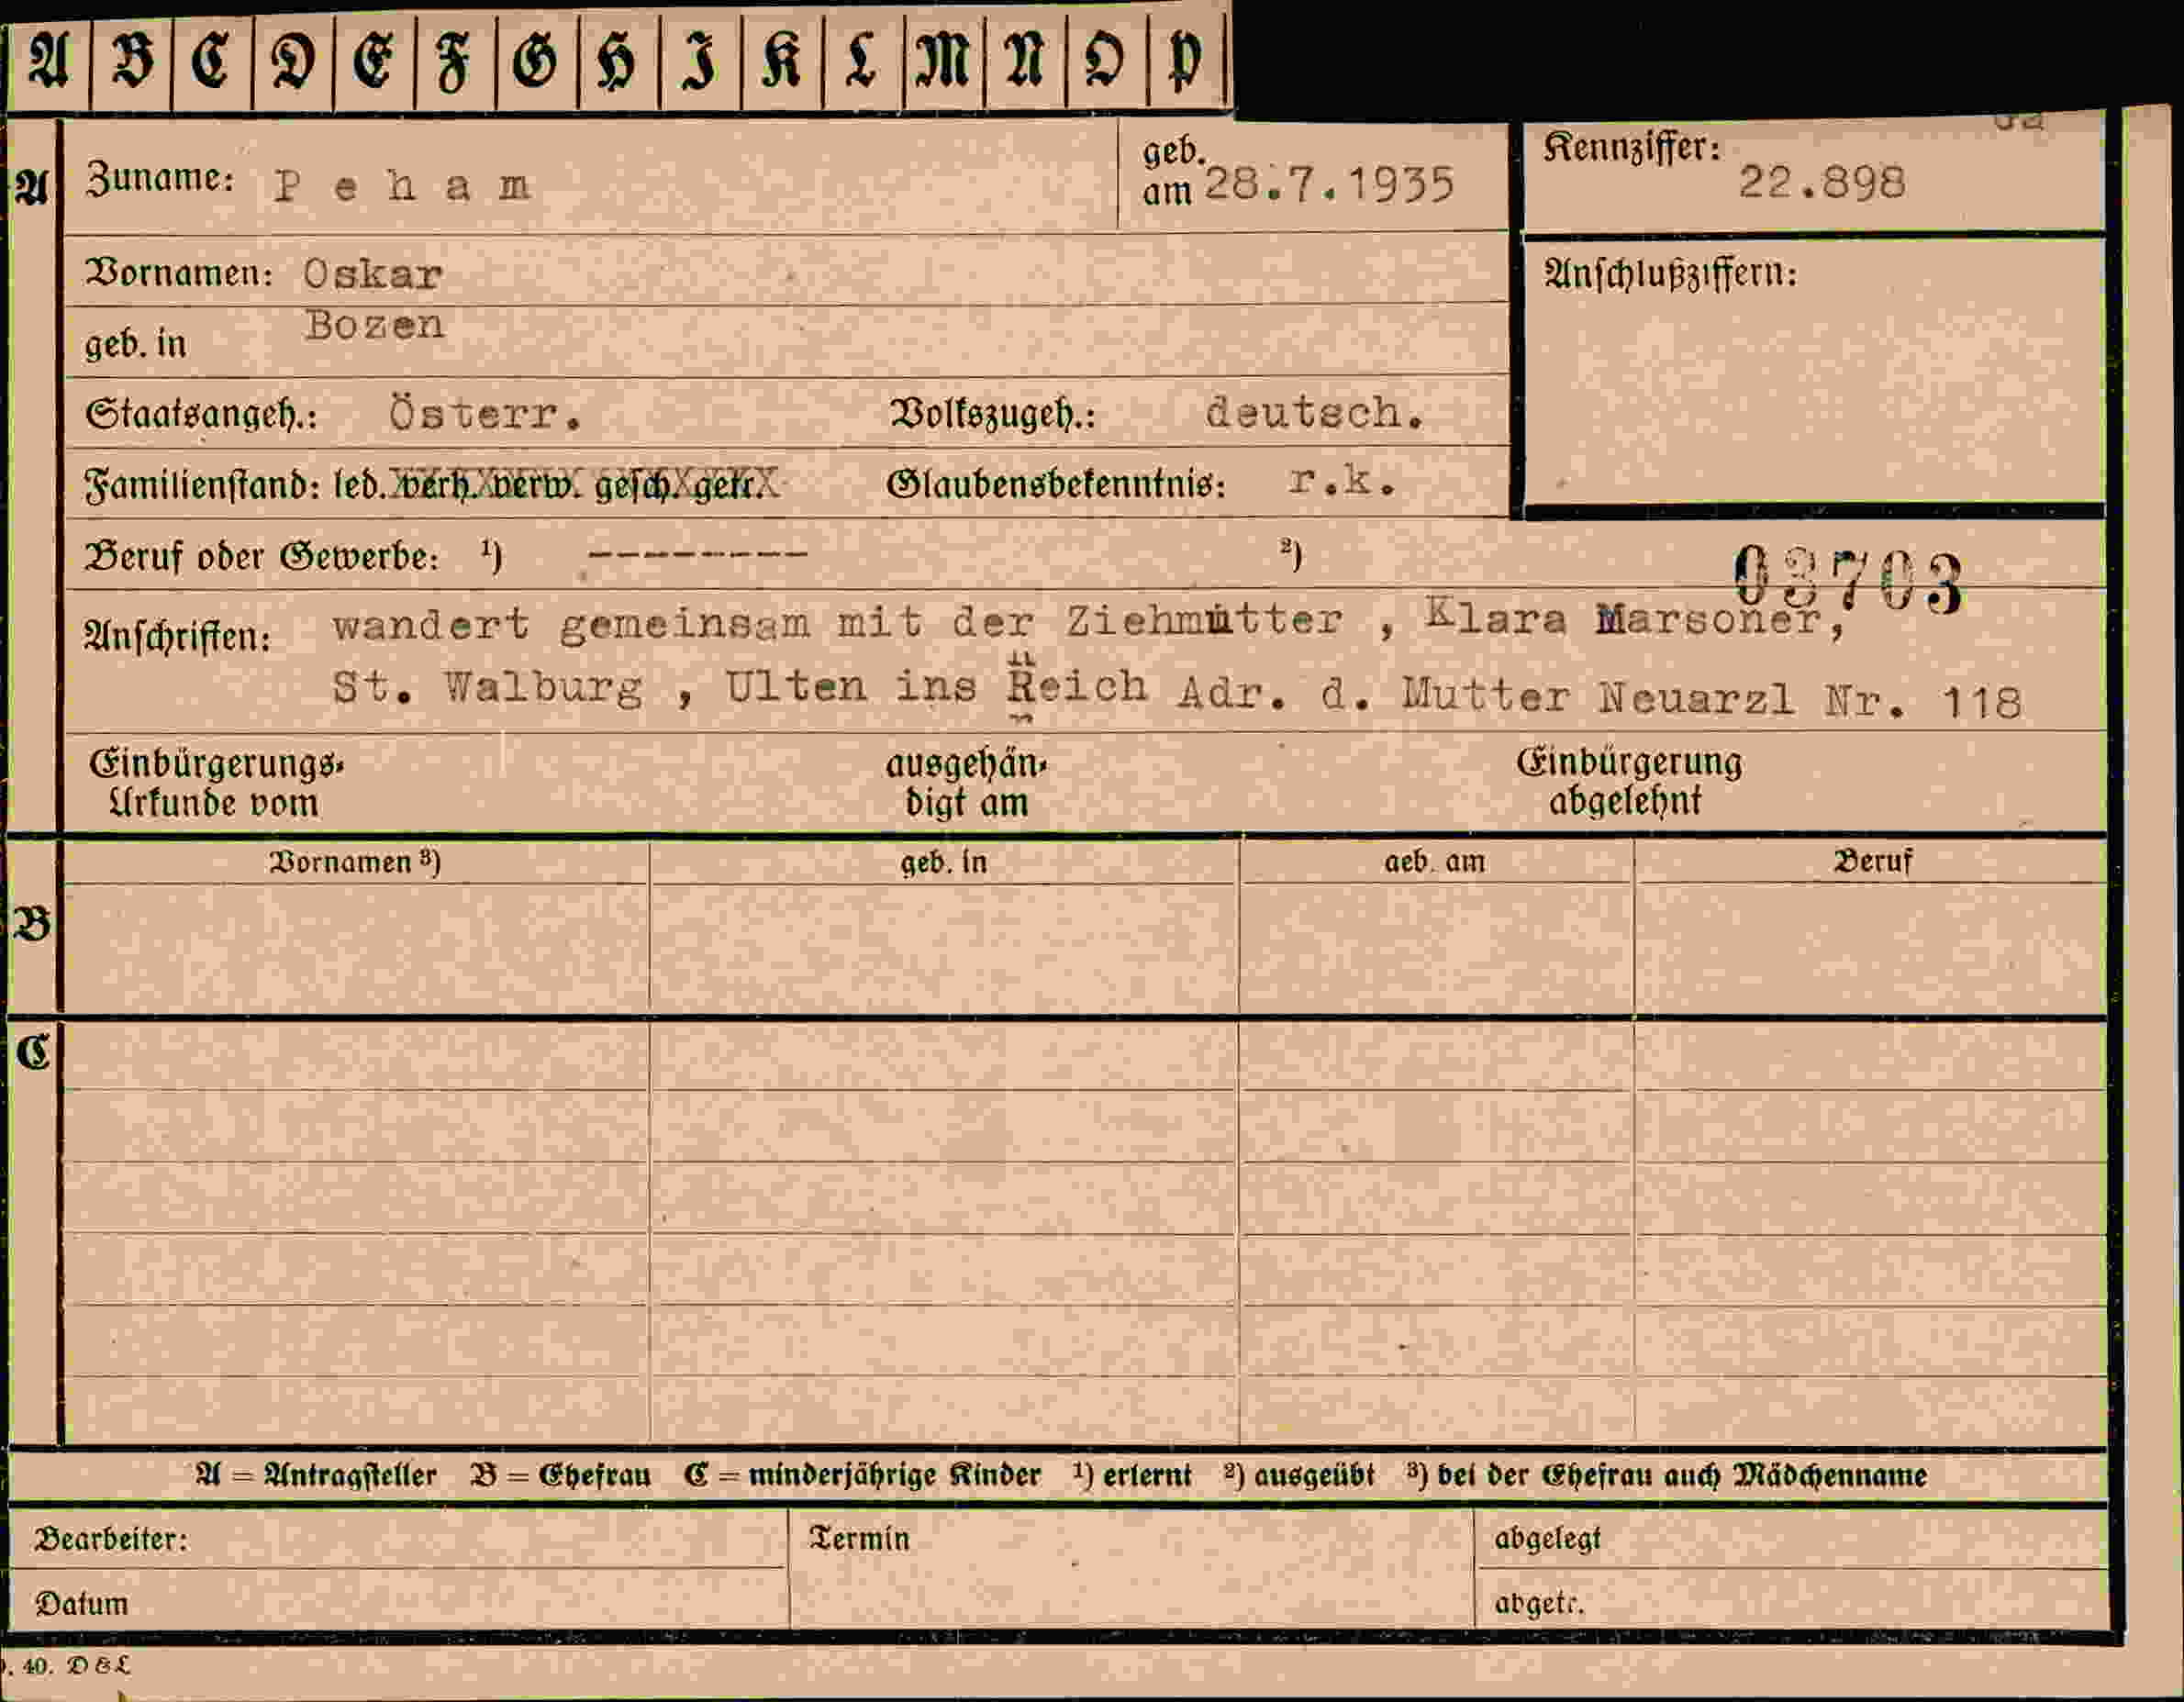 A B C D E F G H I K L M N O P
A Zuname: P e h a m geb. am 28.7.1935 Kennziffer: 22.898
Vornamen: Oskar Anschlußziffern:
geb. in Bozen
Staatsangeh.: Österr. Volkszugeh.: deutsch.
Familienstand: led. verh. verw. gesch. getr. Glaubensbekenntnis: r.k.
Beruf oder Gewerbe: ¹) -------- ²) 03703
Anschriften: wandert gemeinsam mit der Ziehmutter , Klara Marsoner,
St. Walburg , Ulten ins Reich Adr. d. Mutter Neuarzl Nr. 118
Einbürgerungs- ausgehän- Einbürgerung
Urkunde vom digt am abgelehnt
Vornamen ³) geb. in geb. am Beruf
B
C
A = Antragsteller B = Ehefrau C = minderjährige Kinder ¹) erlernt ²) ausgeübt ³) bei der Ehefrau auch Mädchenname
Bearbeiter: Termin abgelegt
Datum abgetr.
. 40. D & L